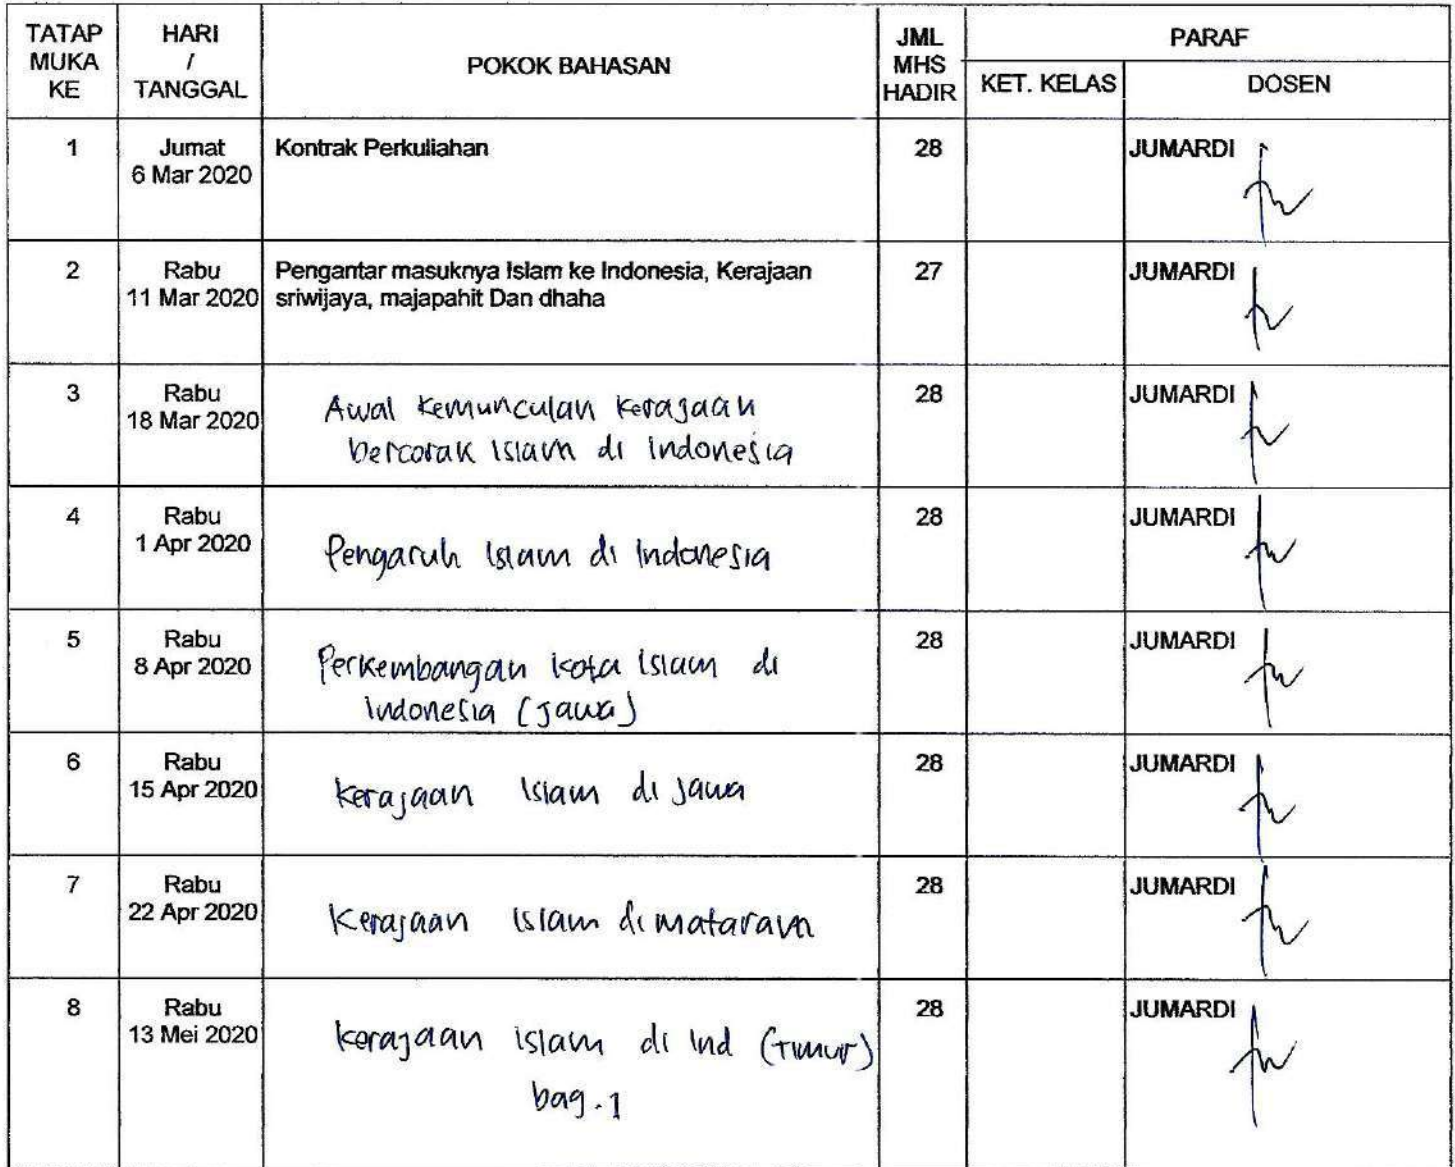 TATAP MUKA KE
HARI / TANGGAL
POKOK BAHASAN
JML MHS HADIR
PARAF
KET. KELAS
DOSEN
1
Jumat
6 Mar 2020
Kontrak Perkuliahan
28
JUMARDI
2
Rabu
11 Mar 2020
Pengantar masuknya Islam ke Indonesia, Kerajaan
sriwijaya, majapahit Dan dhaha
27
JUMARDI
3
Rabu
18 Mar 2020
Awal kemunculan kerajaan
bercorak Islam di Indonesia
28
JUMARDI
4
Rabu
1 Apr 2020
Pengaruh Islam di Indonesia
28
JUMARDI
5
Rabu
8 Apr 2020
Perkembangan kota Islam di
Indonesia (Jawa)
28
JUMARDI
6
Rabu
15 Apr 2020
kerajaan Islam di Jawa
28
JUMARDI
7
Rabu
22 Apr 2020
Kerajaan Islam di mataram
28
JUMARDI
8
Rabu
13 Mei 2020
kerajaan islam di Ind (Timur)
bag. 1
28
JUMARDI